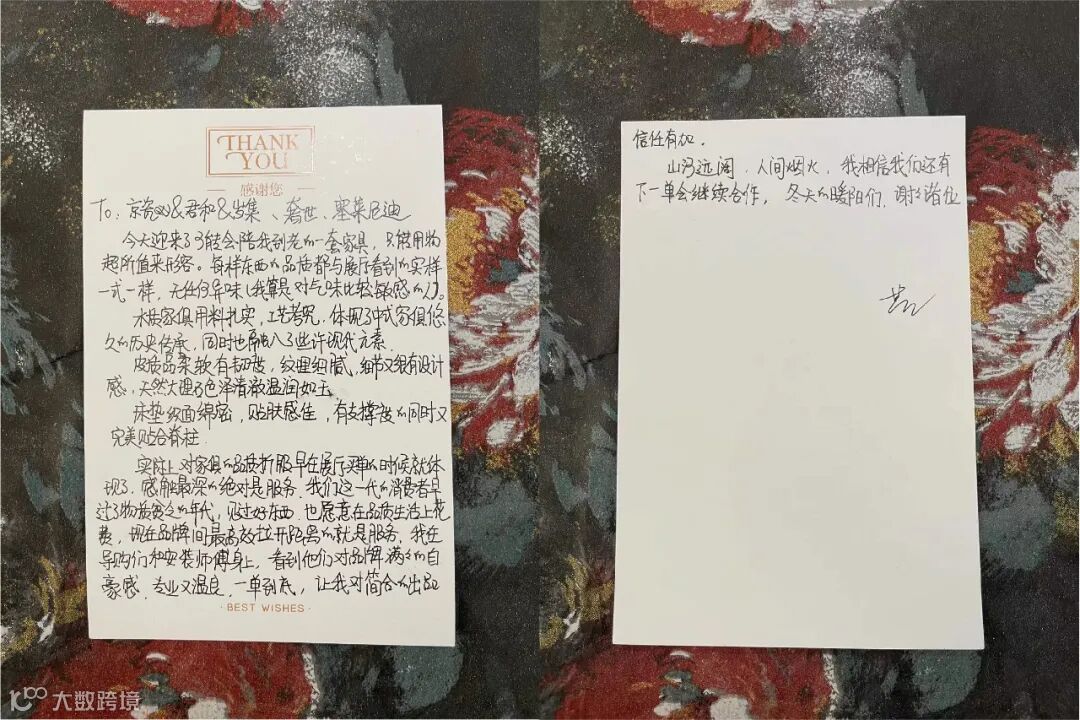 THANK
YOU
感谢您
To: 京瓷&君和&出集、奢世、塞莱尼迪
今天迎来了可能会陪我到老的一套家具，只能用物
超所值来形容。每样东西的品质都与展厅看到的实样
一式一样，无任何异味（我算是对气味比较敏感的人）。
木质家俱用料扎实，工艺考究，体现了中式家俱悠
久的历史传承，同时也融入了些许现代元素.
皮质品柔软有韧度，纹理细腻，细节又很有设计
感，天然大理石色泽清澈温润如玉.
床垫织面绵密，贴肤感佳，有支撑度的同时又
完美贴合脊柱.
实际上对家俱的品质折服早在展厅买单的时候就体
现了，感触最深的绝对是服务，我们这一代的消费者早
过了物质匮乏的年代，见过好东西，也愿意在品质生活上花
费，现在品牌间最高效拉开距离的就是服务，我在
导购们和安装师傅身上，看到他们对品牌满满的自
豪感，专业又温良，一单到底，让我对简合的出品
· BEST WISHES ·
信任有加。
山河远阔，人间烟火，我相信我们还有
下一单会继续合作，冬天的暖阳们，谢谢诸位
大数跨境